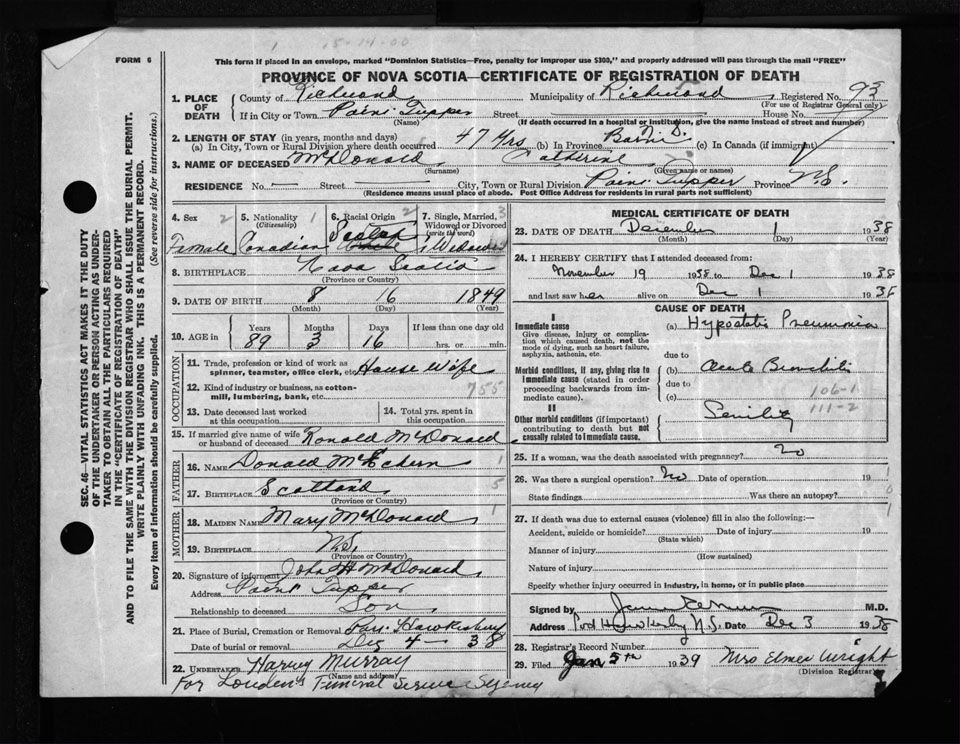 15-14-00
FORM 6
This form if placed in an envelope, marked "Dominion Statistics—Free, penalty for improper use $300," and properly addressed will pass through the mail "FREE"
PROVINCE OF NOVA SCOTIA—CERTIFICATE OF REGISTRATION OF DEATH
1. PLACE OF DEATH County of Richmond Municipality of Richmond Registered No. 93
(For use of Registrar General only)
If in City or Town Point Tupper Street House No.
(Name) (If death occurred in a hospital or institution, give the name instead of street and number)
2. LENGTH OF STAY (in years, months and days)
(a) In City, Town or Rural Division where death occurred 47 Yrs (b) In Province Born N.S. (c) In Canada (if immigrant)
3. NAME OF DECEASED McDonald Catherine
(Surname) (Given name or names)
RESIDENCE No. — Street — City, Town or Rural Division Point Tupper Province N.S.
(Residence means usual place of abode. Post Office Address for residents in rural parts not sufficient)
4. Sex 2 Female
5. Nationality (Citizenship) 1 Canadian
6. Racial Origin 2 Scotch
7. Single, Married, Widowed or Divorced (write the word) 3 Widowed
8. BIRTHPLACE Nova Scotia
(Province or Country)
9. DATE OF BIRTH 8 16 1849
(Month) (Day) (Year)
10. AGE in Years 89 Months 3 Days 16 If less than one day old hrs. or min.
OCCUPATION
11. Trade, profession or kind of work as spinner, teamster, office clerk, etc. House Wife
12. Kind of industry or business, as cotton-mill, lumbering, bank, etc. 755
13. Date deceased last worked at this occupation
14. Total yrs. spent in this occupation
15. If married give name of wife or husband of deceased Ronald McDonald
FATHER
16. NAME Donald McEchern 1
17. BIRTHPLACE Scotland 5
(Province or Country)
MOTHER
18. MAIDEN NAME Mary McDonald 1
19. BIRTHPLACE N.S.
(Province or Country)
20. Signature of informant John H McDonald
Address Point Tupper
Relationship to deceased Son
21. Place of Burial, Cremation or Removal Port Hawkesbury
Date of burial or removal Dec 4 38
22. UNDERTAKER Harvey Murray
(Name and address)
For Louden's Funeral Service Sydney
MEDICAL CERTIFICATE OF DEATH
23. DATE OF DEATH December 1 1938
(Month) (Day) (Year)
24. I HEREBY CERTIFY that I attended deceased from:
November 19 1938 to Dec 1 1938
and last saw her alive on Dec 1 1938
CAUSE OF DEATH
I
Immediate cause
Give disease, injury or complication which caused death, not the mode of dying, such as heart failure, asphyxia, asthenia, etc.
(a) Hypostatic Pneumonia
due to
Morbid conditions, if any, giving rise to immediate cause (stated in order proceeding backwards from immediate cause).
(b) Acute Bronchitis
due to
(c) 106-1
111-2
II
Other morbid conditions (if important) contributing to death but not causally related to immediate cause.
Senility
25. If a woman, was the death associated with pregnancy? No
26. Was there a surgical operation? No Date of operation 19
State findings Was there an autopsy?
27. If death was due to external causes (violence) fill in also the following:—
Accident, suicide or homicide? Date of injury 19
(State which)
Manner of injury
(How sustained)
Nature of injury
Specify whether injury occurred in industry, in home, or in public place
Signed by M.D.
Address Port Hawkesbury N.S. Date Dec 3 1938
28. Registrar's Record Number
29. Filed Jan 5th 1939 Mrs Elmer Wright
(Division Registrar)
SEC. 46—VITAL STATISTICS ACT MAKES IT THE DUTY
OF THE UNDERTAKER OR PERSON ACTING AS UNDER-
TAKER TO OBTAIN ALL THE PARTICULARS REQUIRED
IN THE "CERTIFICATE OF REGISTRATION OF DEATH"
AND TO FILE THE SAME WITH THE DIVISION REGISTRAR WHO SHALL ISSUE THE BURIAL PERMIT.
WRITE PLAINLY WITH UNFADING INK. THIS IS A PERMANENT RECORD.
Every item of information should be carefully supplied. (See reverse side for instructions.)